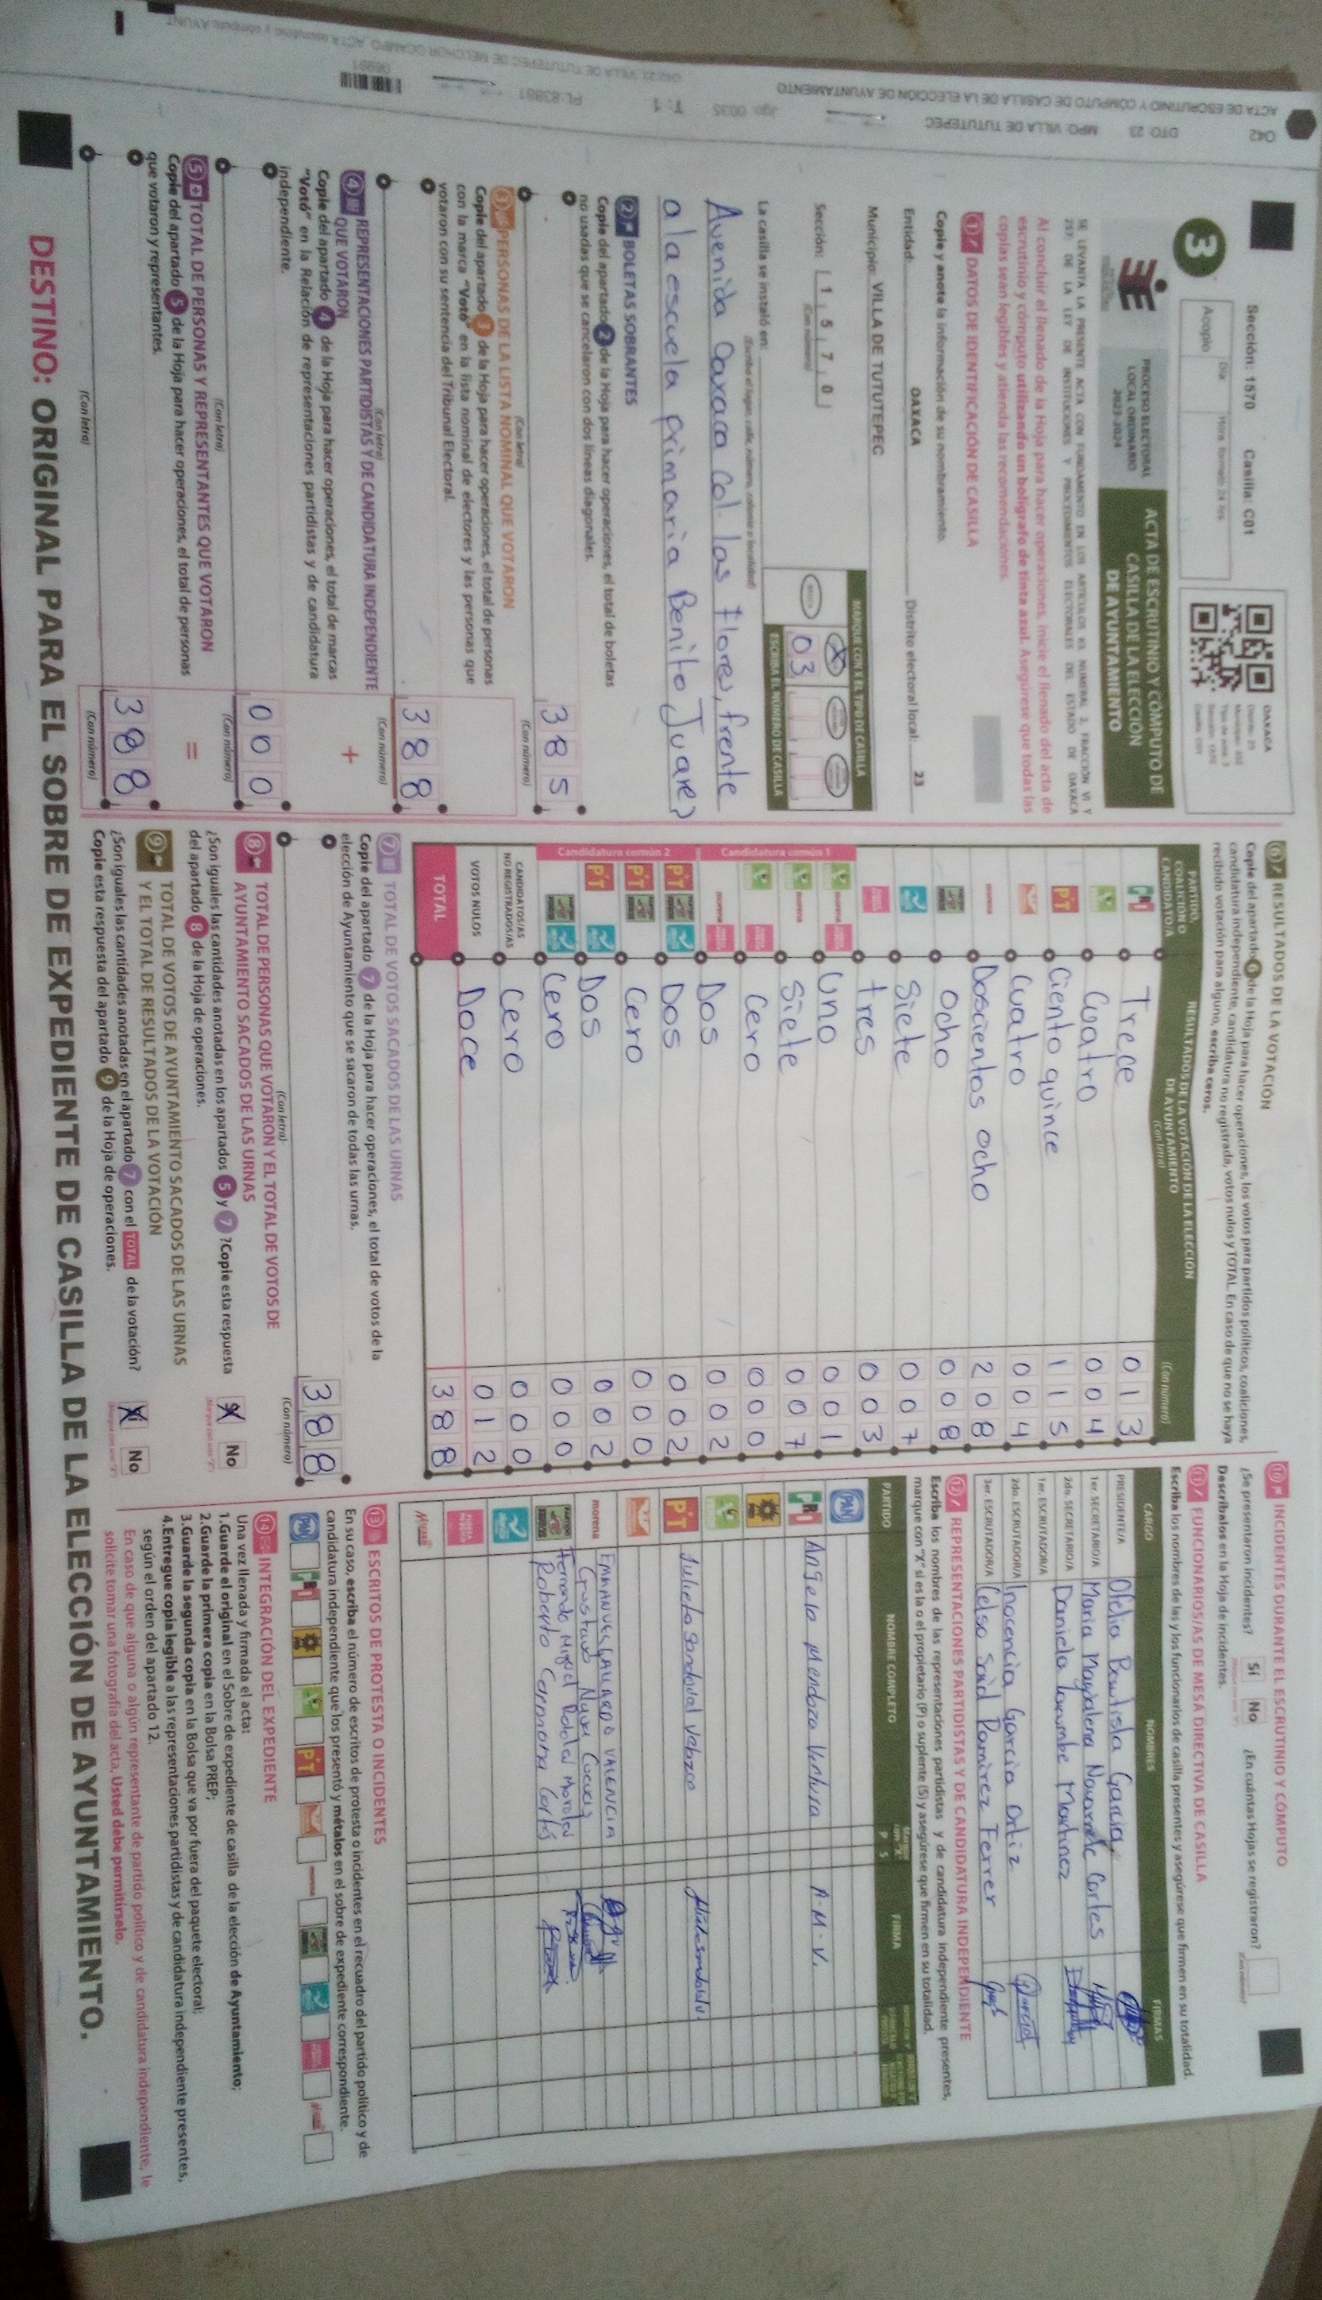 042
DTO: 23
MPO: VILLA DE TUTUTEPEC
ACTA DE ESCRUTINIO Y CÓMPUTO DE CASILLA DE LA ELECCIÓN DE AYUNTAMIENTO
T: 1
PL: 83881
Sección: 1570 Casilla: C01
3
Acopio
OAXACA
PROCESO ELECTORAL
LOCAL ORDINARIO
2023-2024
ACTA DE ESCRUTINIO Y CÓMPUTO DE
CASILLA DE LA ELECCIÓN
DE AYUNTAMIENTO
SE LEVANTA LA PRESENTE ACTA CON FUNDAMENTO EN LOS ARTÍCULOS 63, NUMERAL 2, FRACCIÓN VI Y
257; DE LA LEY DE INSTITUCIONES Y PROCEDIMIENTOS ELECTORALES DEL ESTADO DE OAXACA
Al concluir el llenado de la Hoja para hacer operaciones, inicie el llenado del acta de
escrutinio y cómputo utilizando un bolígrafo de tinta azul. Asegúrese que todas las
copias sean legibles y atienda las recomendaciones.
1 DATOS DE IDENTIFICACIÓN DE CASILLA
Copie y anote la información de su nombramiento.
Entidad: OAXACA Distrito electoral local: 23
Municipio: VILLA DE TUTUTEPEC
Sección: 1 5 7 0
(Con número)
MARQUE CON X EL TIPO DE CASILLA
X
ESCRIBA EL NÚMERO DE CASILLA
03
La casilla se instaló en:
(Escriba el lugar: calle, número, colonia o localidad)
Avenida Oaxaca Col. las flores, frente
a la escuela primaria Benito Juarez
2 BOLETAS SOBRANTES
Copie del apartado 2 de la Hoja para hacer operaciones, el total de boletas
no usadas que se cancelaron con dos líneas diagonales.
385
(Con letra) (Con número)
3 PERSONAS DE LA LISTA NOMINAL QUE VOTARON
Copie del apartado 3 de la Hoja para hacer operaciones, el total de personas
con la marca "Votó" en la lista nominal de electores y las personas que
votaron con su sentencia del Tribunal Electoral.
388
(Con letra) (Con número)
4 REPRESENTACIONES PARTIDISTAS Y DE CANDIDATURA INDEPENDIENTE
QUE VOTARON
+
Copie del apartado 4 de la Hoja para hacer operaciones, el total de marcas
"Votó" en la Relación de representaciones partidistas y de candidatura
independiente.
000
(Con letra) (Con número)
5 TOTAL DE PERSONAS Y REPRESENTANTES QUE VOTARON
=
Copie del apartado 5 de la Hoja para hacer operaciones, el total de personas
que votaron y representantes.
388
(Con letra) (Con número)
6 RESULTADOS DE LA VOTACIÓN
Copie del apartado 6 de la Hoja para hacer operaciones, los votos para partidos políticos, coaliciones,
candidatura independiente, candidatura no registrada, votos nulos y TOTAL. En caso de que no se haya
recibido votación para alguno, escriba ceros.
PARTIDO, COALICIÓN O CANDIDATO/A
RESULTADOS DE LA VOTACIÓN DE LA ELECCIÓN
DE AYUNTAMIENTO
(Con letra) (Con número)
PRI Trece 013
Cuatro 004
PT Ciento quince 115
Cuatro 004
morena Doscientos ocho 208
Ocho 008
Siete 007
tres 003
Candidatura común 1
morena Uno 001
morena Siete 007
Cero 000
morena Dos 002
Candidatura común 2
PT Dos 002
PT Cero 000
PT Dos 002
Cero 000
CANDIDATOS/AS
NO REGISTRADOS/AS Cero 000
VOTOS NULOS Doce 012
TOTAL 388
7 TOTAL DE VOTOS SACADOS DE LAS URNAS
Copie del apartado 7 de la Hoja para hacer operaciones, el total de votos de la
elección de Ayuntamiento que se sacaron de todas las urnas.
388
(Con letra) (Con número)
8 TOTAL DE PERSONAS QUE VOTARON Y EL TOTAL DE VOTOS DE
AYUNTAMIENTO SACADOS DE LAS URNAS
¿Son iguales las cantidades anotadas en los apartados 5 y 7? Copie esta respuesta
del apartado 8 de la Hoja de operaciones.
X No
9 TOTAL DE VOTOS DE AYUNTAMIENTO SACADOS DE LAS URNAS
Y EL TOTAL DE RESULTADOS DE LA VOTACIÓN
¿Son iguales las cantidades anotadas en el apartado 7 con el TOTAL de la votación?
Copie esta respuesta del apartado 9 de la Hoja de operaciones.
X No
10 INCIDENTES DURANTE EL ESCRUTINIO Y CÓMPUTO
¿Se presentaron incidentes? Sí No ¿En cuántas Hojas se registraron?
Descríbalos en la Hoja de incidentes.
11 FUNCIONARIOS/AS DE MESA DIRECTIVA DE CASILLA
Escriba los nombres de las y los funcionarios de casilla presentes y asegúrese que firmen en su totalidad.
CARGO NOMBRES FIRMAS
PRESIDENTE/A Ofelia Bautista Garcia
1er. SECRETARIO/A Maria Magalena Navarrete Cortes
2do. SECRETARIO/A Daniela Martinez
1er. ESCRUTADOR/A
2do. ESCRUTADOR/A Inocencia Garcia Ortiz
3er. ESCRUTADOR/A Celso Said Ramirez Ferrer
12 REPRESENTACIONES PARTIDISTAS Y DE CANDIDATURA INDEPENDIENTE
Escriba los nombres de las representaciones partidistas y de candidatura independiente presentes,
marque con "X" si es la o el propietario (P) o suplente (S) y asegúrese que firmen en su totalidad.
PARTIDO NOMBRE COMPLETO P S FIRMA
PAN
PRI Angela Mendoza Ventura A.M.V.
PT Julieta Sandoval Velazco
morena EMMANUEL GALLARDO VALENCIA
Gustavo Nava
Fernando Miguel Morales
Roberto Carmona Cortés
13 ESCRITOS DE PROTESTA O INCIDENTES
En su caso, escriba el número de escritos de protesta o incidentes en el recuadro del partido político y de
candidatura independiente que los presentó y métalos en el sobre de expediente correspondiente.
PAN PRI PT
14 INTEGRACIÓN DEL EXPEDIENTE
Una vez llenada y firmada el acta:
1.Guarde el original en el Sobre de expediente de casilla de la elección de Ayuntamiento;
2.Guarde la primera copia en la Bolsa PREP;
3.Guarde la segunda copia en la Bolsa que va por fuera del paquete electoral;
4.Entregue copia legible a las representaciones partidistas y de candidatura independiente presentes,
según el orden del apartado 12.
En caso de que alguna o algún representante de partido político y de candidatura independiente, le
solicite tomar una fotografía del acta, Usted debe permitírselo.
DESTINO: ORIGINAL PARA EL SOBRE DE EXPEDIENTE DE CASILLA DE LA ELECCIÓN DE AYUNTAMIENTO.